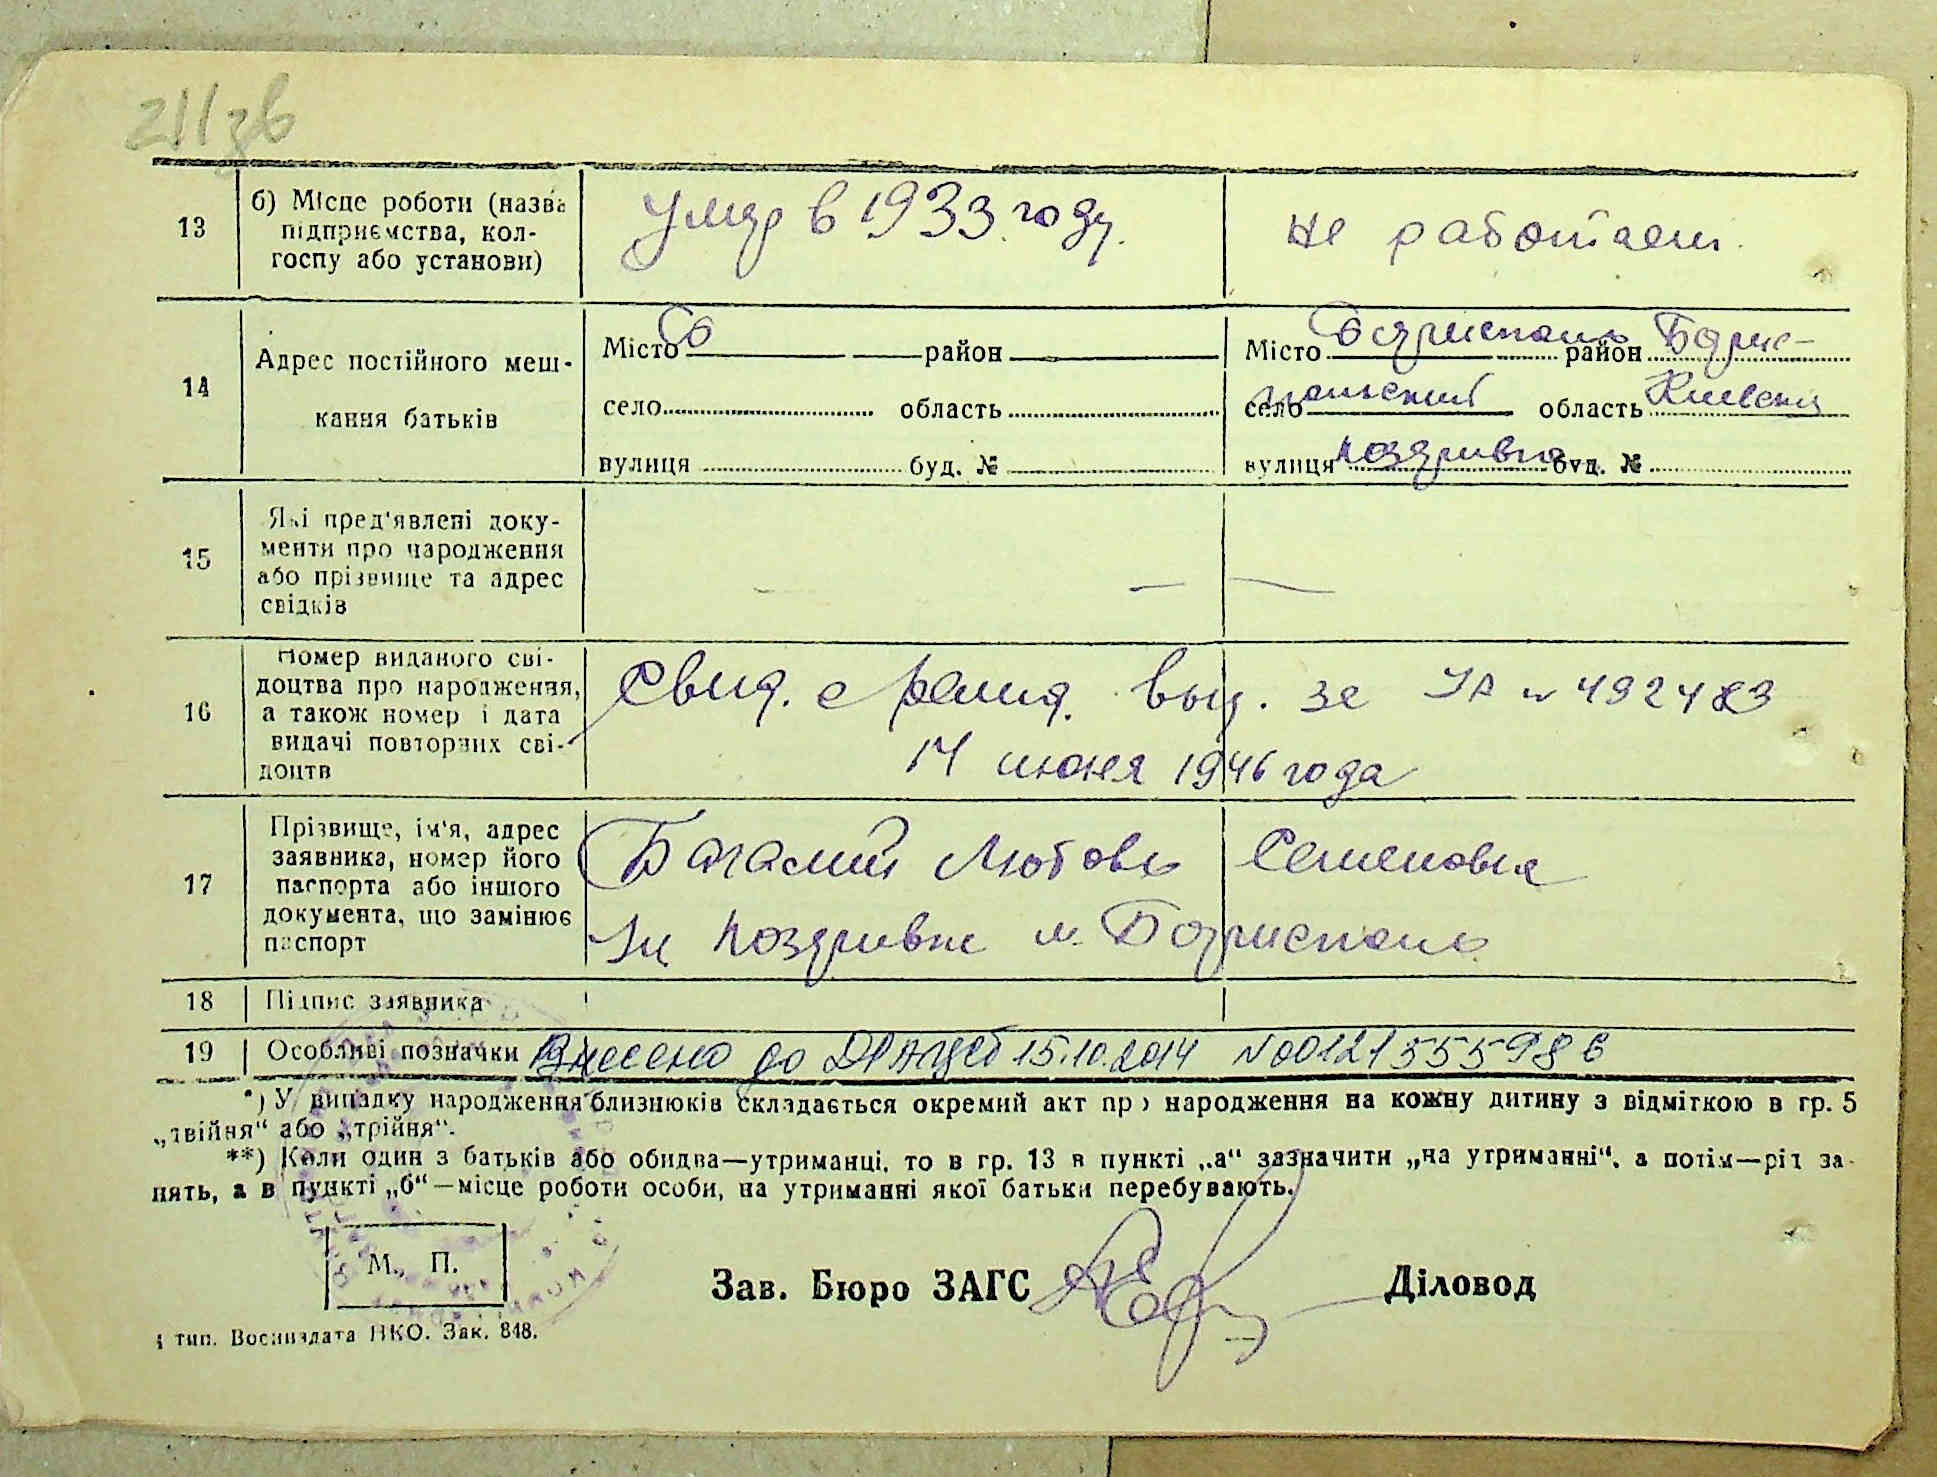 211зв
13
б) Місце роботи (назва
підприємства, кол-
госпу або установи)
умер в 1933 году.
не работает.
14
Адрес постійного меш-
кання батьків
Місто район
село область
вулиця буд. №
Місто Бориспол район Борис-
село польский область Киевск
вулиця Поздривка буд. №
15
Які пред'явлені доку-
менти про народження
або прізвище та адрес
свідків
— —
16
Номер виданого сві-
доцтва про народження,
а також номер і дата
видачі повторних сві-
доцтв
Свид. о рожд. выд. за УА № 492483
14 июня 1946 года
17
Прізвище, ім'я, адрес
заявника, номер його
паспорта або іншого
документа, що замінює
паспорт
Багалий Любовь Семеновна
Поздривка м. Бориспол
18 Підпис заявника
19 Особливі позначки Внесено до ДРАЦСГ 15.10.2014 №00121555986
*) У випадку народження близнюків складається окремий акт про народження на кожну дитину з відміткою в гр. 5
„двійня“ або „трійня“.
**) Коли один з батьків або обидва—утриманці, то в гр. 13 в пункті „а“ зазначити „на утриманні“, а потім—рід за-
нять, а в пункті „б“—місце роботи особи, на утриманні якої батьки перебувають.
М. П.
Зав. Бюро ЗАГС
Діловод
тип. Воениздата НКО. Зак. 848.